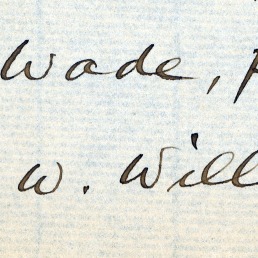 Wade,
W. Will